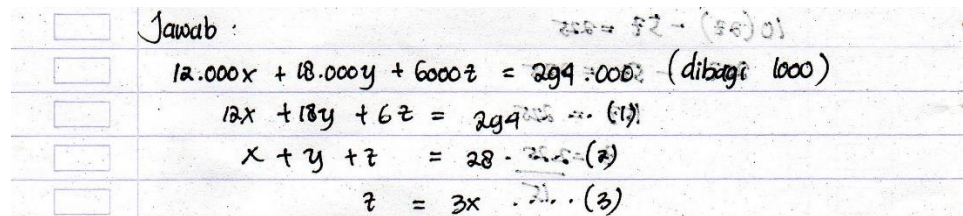 Jawab :
12.000x + 18.000y + 6000z = 294.000 (dibagi 1000)
12x + 18y + 6z = 294 ... (1)
x + y + z = 28 ... (2)
z = 3x ... (3)